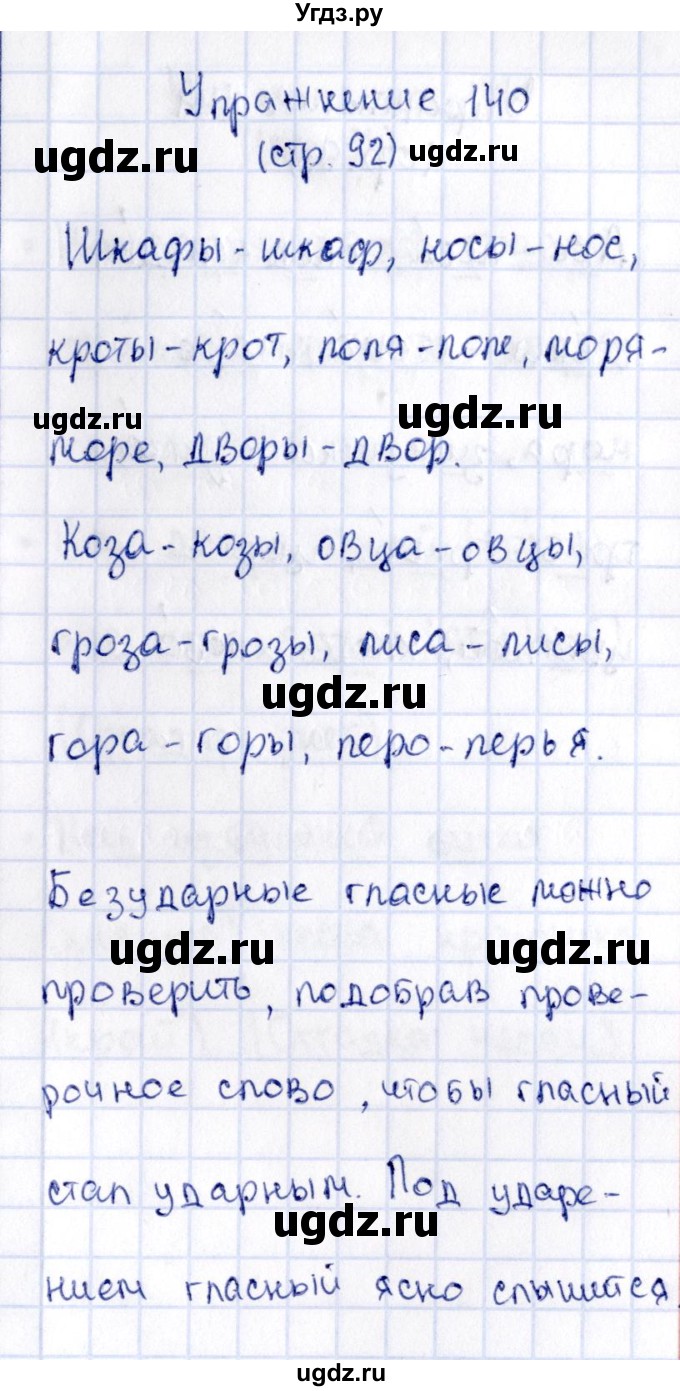 Угдз.ру
Упражнение 140
ugdz.ru (стр. 92) ugdz.ru
Шкафы - шкаф, носы - нос,
кроты - крот, поля - поле, моря -
ugdz.ru ugdz.ru
море, дворы - двор.
Коза - козы, овца - овцы,
гроза - грозы, лиса - лисы,
ugdz.ru
гора - горы, перо - перья.
Безударные гласные можно
ugdz.ru
проверить, подобрав прове-
рочное слово, чтобы гласный
стал ударным. Под ударе-
ugdz.ru
нием гласный ясно слышится
ugdz.ru